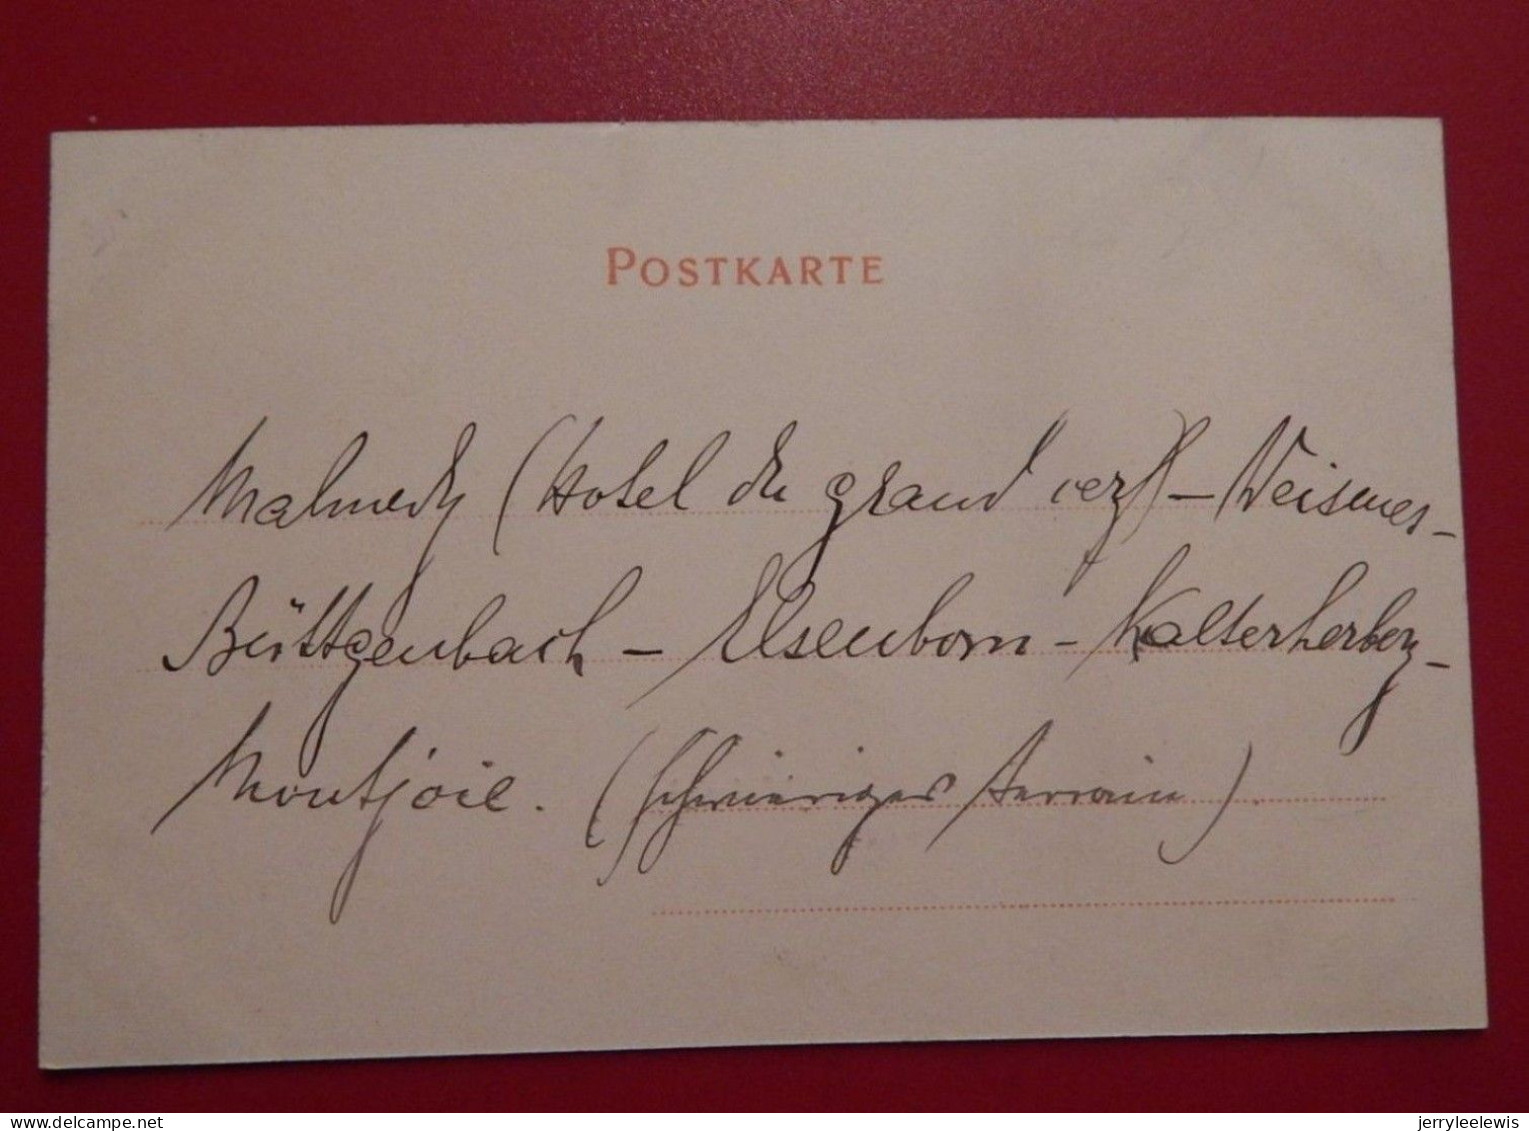 POSTKARTE
Malmedy (Hotel du grand cerf) – Weismes –
Büttgenbach – Elsenborn – Kalterherberg –
Montjoie. (schwieriges terrain)
www.delcampe.net
jerryleelewis